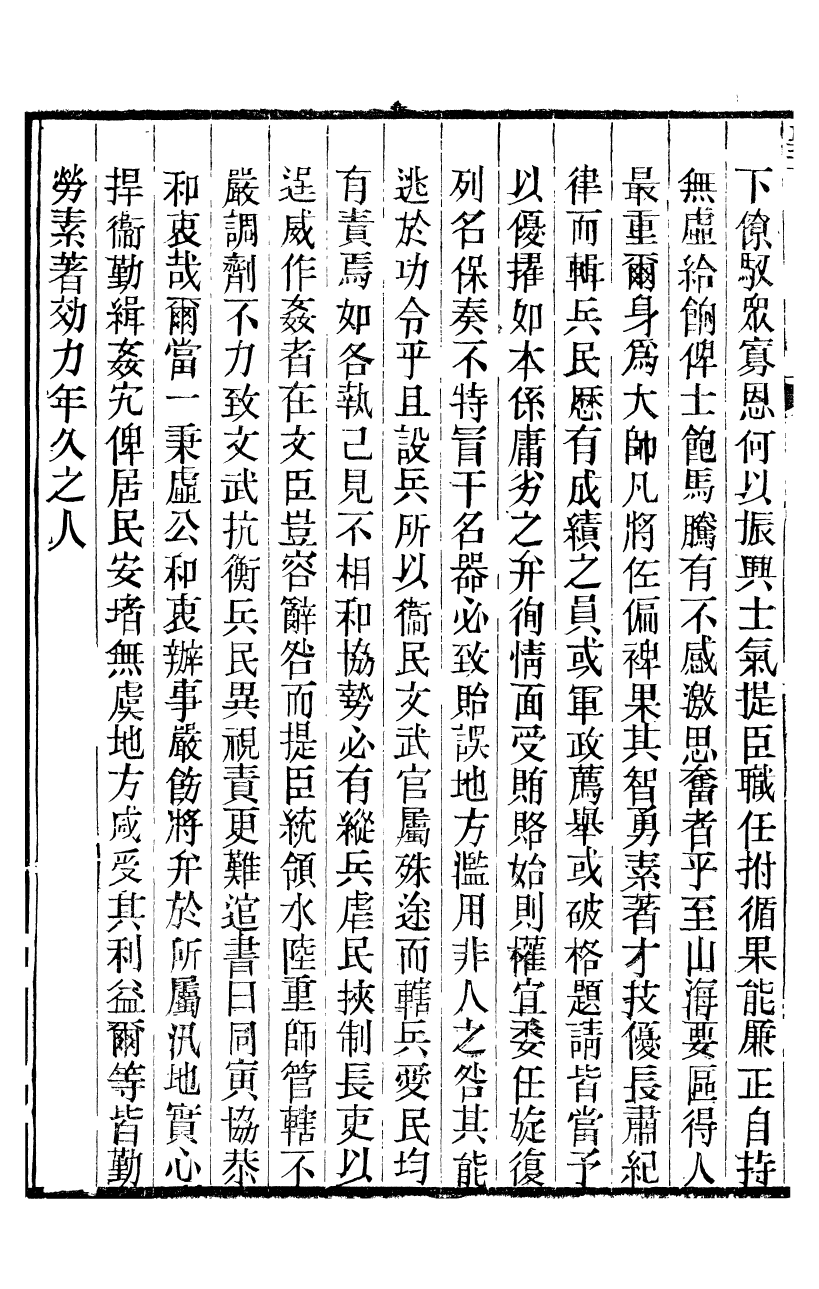 下僚馭眾寡恩何以振興士氣提臣職任拊循果能廉正自持
無虛給餉俾士飽馬騰有不感激思奮者乎至山海要區得人
最重爾身為大帥凡將佐偏裨果其智勇素著才技優長肅紀
律而輯兵民歷有成績之員或軍政薦舉或破格題請皆當予
以優擢如本係庸劣之弁徇情面受賄賂始則權宜委任旋復
列名保奏不特冒干名器必致貽誤地方濫用非人之咎其能
逃於功令乎且設兵所以衞民文武官屬殊途而轄兵愛民均
有責焉如各執己見不相和協勢必有縱兵虐民挾制長吏以
逞威作姦者在文臣豈容辭咎而提臣統領水陸重師管轄不
嚴調劑不力致文武抗衡兵民異視責更難逭書曰同寅協恭
和衷哉爾當一秉虛公和衷辦事嚴飭將弁於所屬汛地實心
捍衞勤緝姦宄俾居民安堵無虞地方咸受其利益爾等皆勤
勞素著効力年久之人